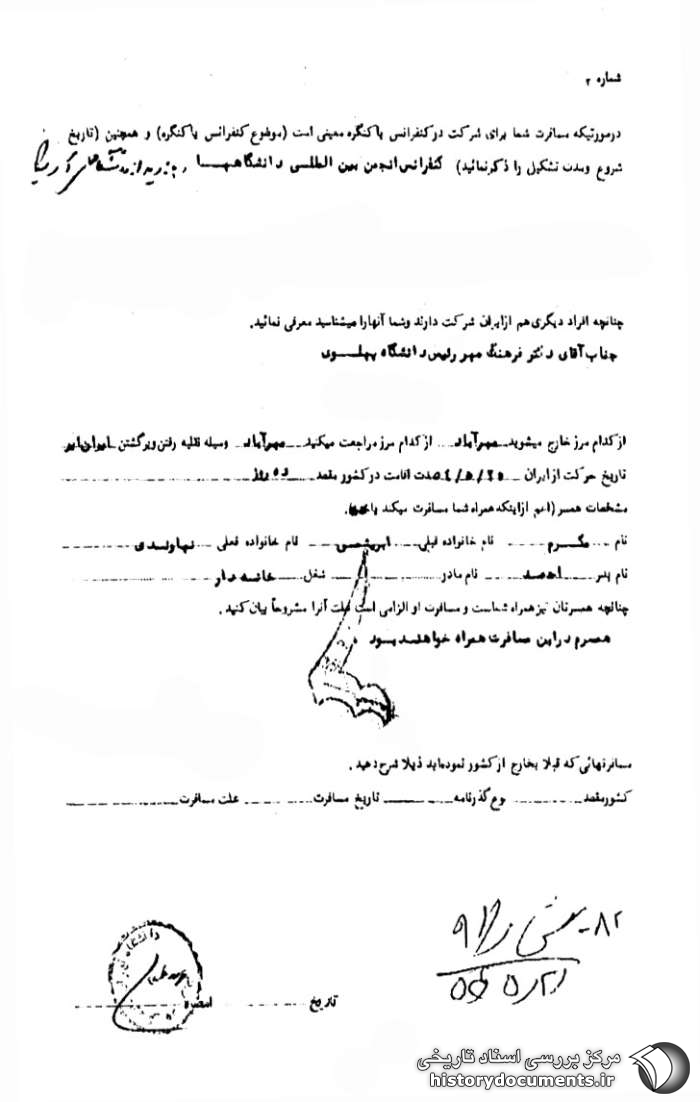 شماره ۲
درصورتیکه مسافرت شما برای شرکت در کنفرانس یا کنگره معینی است (موضوع کنفرانس یا کنگره) و همچنین (تاریخ
شروع ومدت تشکیل را ذکر نمائید) کنفرانس انجمن بین المللی دانشگاهها
چنانچه افراد دیگری هم از ایران شرکت دارند وشما آنهارا میشناسید معرفی نمائید.
جناب آقای دکتر فرهنگ مهر رئیس دانشگاه پهلوی
از کدام مرز خارج میشوید مهرآباد از کدام مرز مراجعت میکنید مهرآباد وسیله نقلیه رفتن وبرگشتن ایران ایر
تاریخ حرکت از ایران مدت اقامت در کشور مقصد ده روز
مشخصات همسر (اعم از اینکه همراه شما مسافرت میکند یا خیر).
نام مکرم نام خانواده قبلی ابریشمی نام خانواده فعلی نهاوندی
نام پدر احمد نام مادر شغل خانه دار
چنانچه همسرتان نیز همراه شماست و مسافرت او الزامی است علت آنرا مشروحاً بیان کنید.
همسرم در این مسافرت همراه خواهند بود
مسافرتهائی که قبلا بخارج از کشور نموده‌اید ذیلا شرح دهید.
کشور مقصد نوع گذرنامه تاریخ مسافرت علت مسافرت
تاریخ امضاء
مرکز بررسی اسناد تاریخی
historydocuments.ir